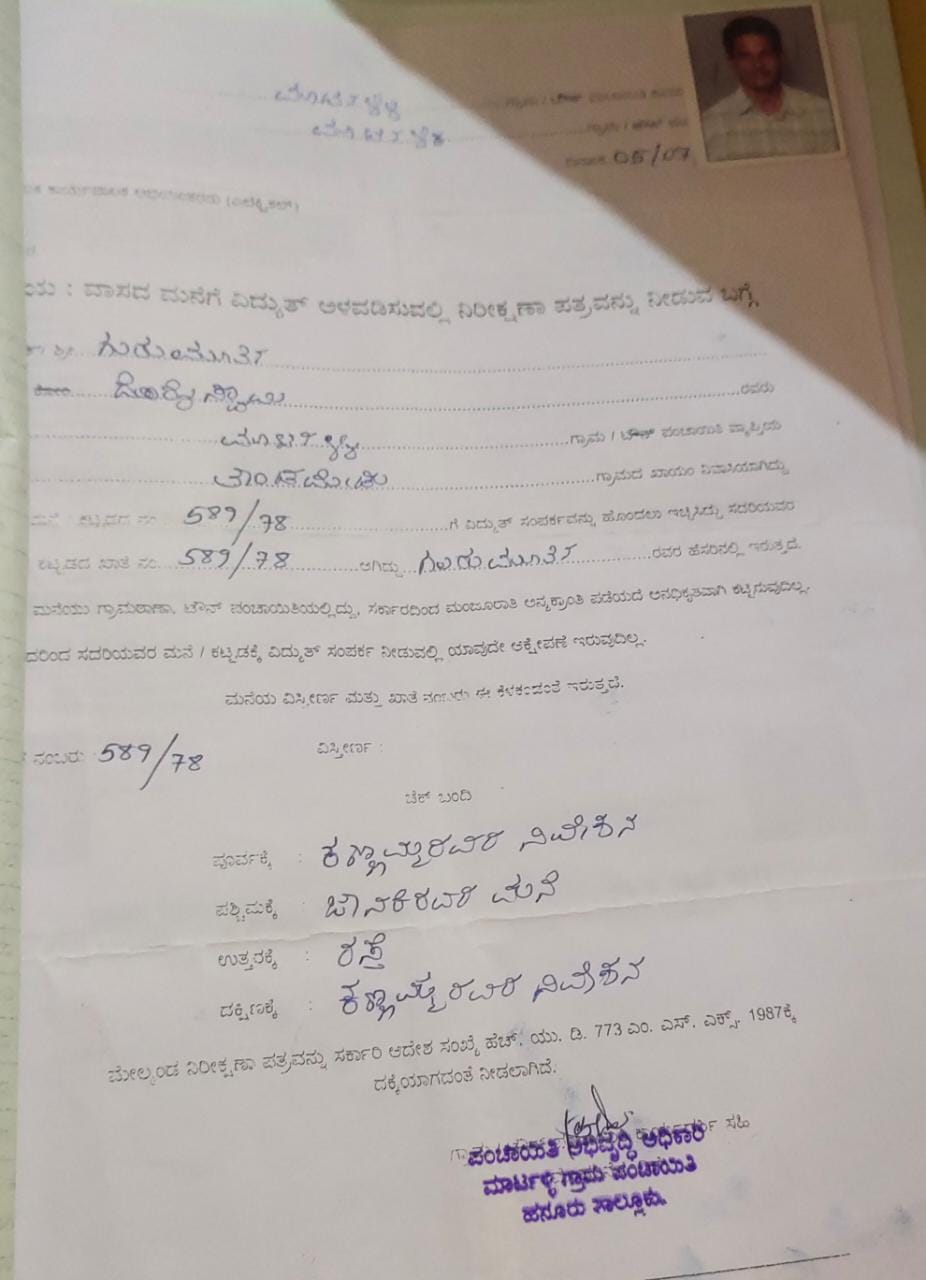 ಮಾರ್ಟಳ್ಳಿ ಗ್ರಾಮ / ಟೌನ್ ಪಂಚಾಯಿತಿ
ಮಾರ್ಟಳ್ಳಿ ಗ್ರಾಮ / ಟೌನ್
ದಿನಾಂಕ 05/07
ಕಾರ್ಯಪಾಲಕ ಅಭಿಯಂತರರು (ಎಲೆಕ್ಟ್ರಿಕಲ್)
: ವಾಸದ ಮನೆಗೆ ವಿದ್ಯುತ್ ಅಳವಡಿಸುವಲ್ಲಿ ನಿರೀಕ್ಷಣಾ ಪತ್ರವನ್ನು ನೀಡುವ ಬಗ್ಗೆ
ಶ್ರೀ ಗುರುಮೂರ್ತಿ
ದೊರೈಸ್ವಾಮಿ ರವರು
ಮಾರ್ಟಳ್ಳಿ ಗ್ರಾಮ / ಟೌನ್ ಪಂಚಾಯಿತಿ ವ್ಯಾಪ್ತಿಯ
ಗ್ರಾಮದ ಖಾಯಂ ನಿವಾಸಿಯಾಗಿದ್ದು
ಮನೆ ಕಟ್ಟಡದ ನಂ. 589/78 ಗೆ ವಿದ್ಯುತ್ ಸಂಪರ್ಕವನ್ನು ಹೊಂದಲು ಇಚ್ಛಿಸಿದ್ದು ಸದರಿಯವರ
ಕಟ್ಟಡದ ಖಾತೆ ನಂ. 589/78 ಆಗಿದ್ದು ಗುರುಮೂರ್ತಿ ರವರ ಹೆಸರಿನಲ್ಲಿ ಇರುತ್ತದೆ.
ಮನೆಯು ಗ್ರಾಮಠಾಣಾ, ಟೌನ್ ಪಂಚಾಯಿತಿಯಲ್ಲಿದ್ದು, ಸರ್ಕಾರದಿಂದ ಮಂಜೂರಾತಿ ಅನ್ಯಕ್ರಾಂತಿ ಪಡೆಯದೆ ಅನಧಿಕೃತವಾಗಿ ಕಟ್ಟಿರುವುದಿಲ್ಲ.
ಸದರಿಯವರ ಮನೆ / ಕಟ್ಟಡಕ್ಕೆ ವಿದ್ಯುತ್ ಸಂಪರ್ಕ ನೀಡುವಲ್ಲಿ ಯಾವುದೇ ಆಕ್ಷೇಪಣೆ ಇರುವುದಿಲ್ಲ.
ಮನೆಯ ವಿಸ್ತೀರ್ಣ ಮತ್ತು ಖಾತೆ ನಂಬರು ಈ ಕೆಳಕಂಡಂತೆ ಇರುತ್ತದೆ.
ನಂಬರು 589/78 ವಿಸ್ತೀರ್ಣ :
ಚೆಕ್ ಬಂದಿ
ಪೂರ್ವಕ್ಕೆ : ಕಣ್ಣಾಮ್ಮರವರ ನಿವೇಶನ
ಪಶ್ಚಿಮಕ್ಕೆ : ಜಾನಕಿರವರ ಮನೆ
ಉತ್ತರಕ್ಕೆ : ರಸ್ತೆ
ದಕ್ಷಿಣಕ್ಕೆ : ಕಣ್ಣಾಮ್ಮರವರ ನಿವೇಶನ
ಮೇಲ್ಕಂಡ ನಿರೀಕ್ಷಣಾ ಪತ್ರವನ್ನು ಸರ್ಕಾರಿ ಆದೇಶ ಸಂಖ್ಯೆ ಹೆಚ್. ಯು. ಡಿ. 773 ಎಂ. ಎಸ್. ಎಕ್ಸ್. 1987ಕ್ಕೆ
ದಕ್ಕೆಯಾಗದಂತೆ ನೀಡಲಾಗಿದೆ.
ಸಹಿ
ಪಂಚಾಯತಿ ಅಭಿವೃದ್ಧಿ ಅಧಿಕಾರಿ
ಮಾರ್ಟಳ್ಳಿ ಗ್ರಾಮ ಪಂಚಾಯಿತಿ
ಹನೂರು ತಾಲ್ಲೂಕು.